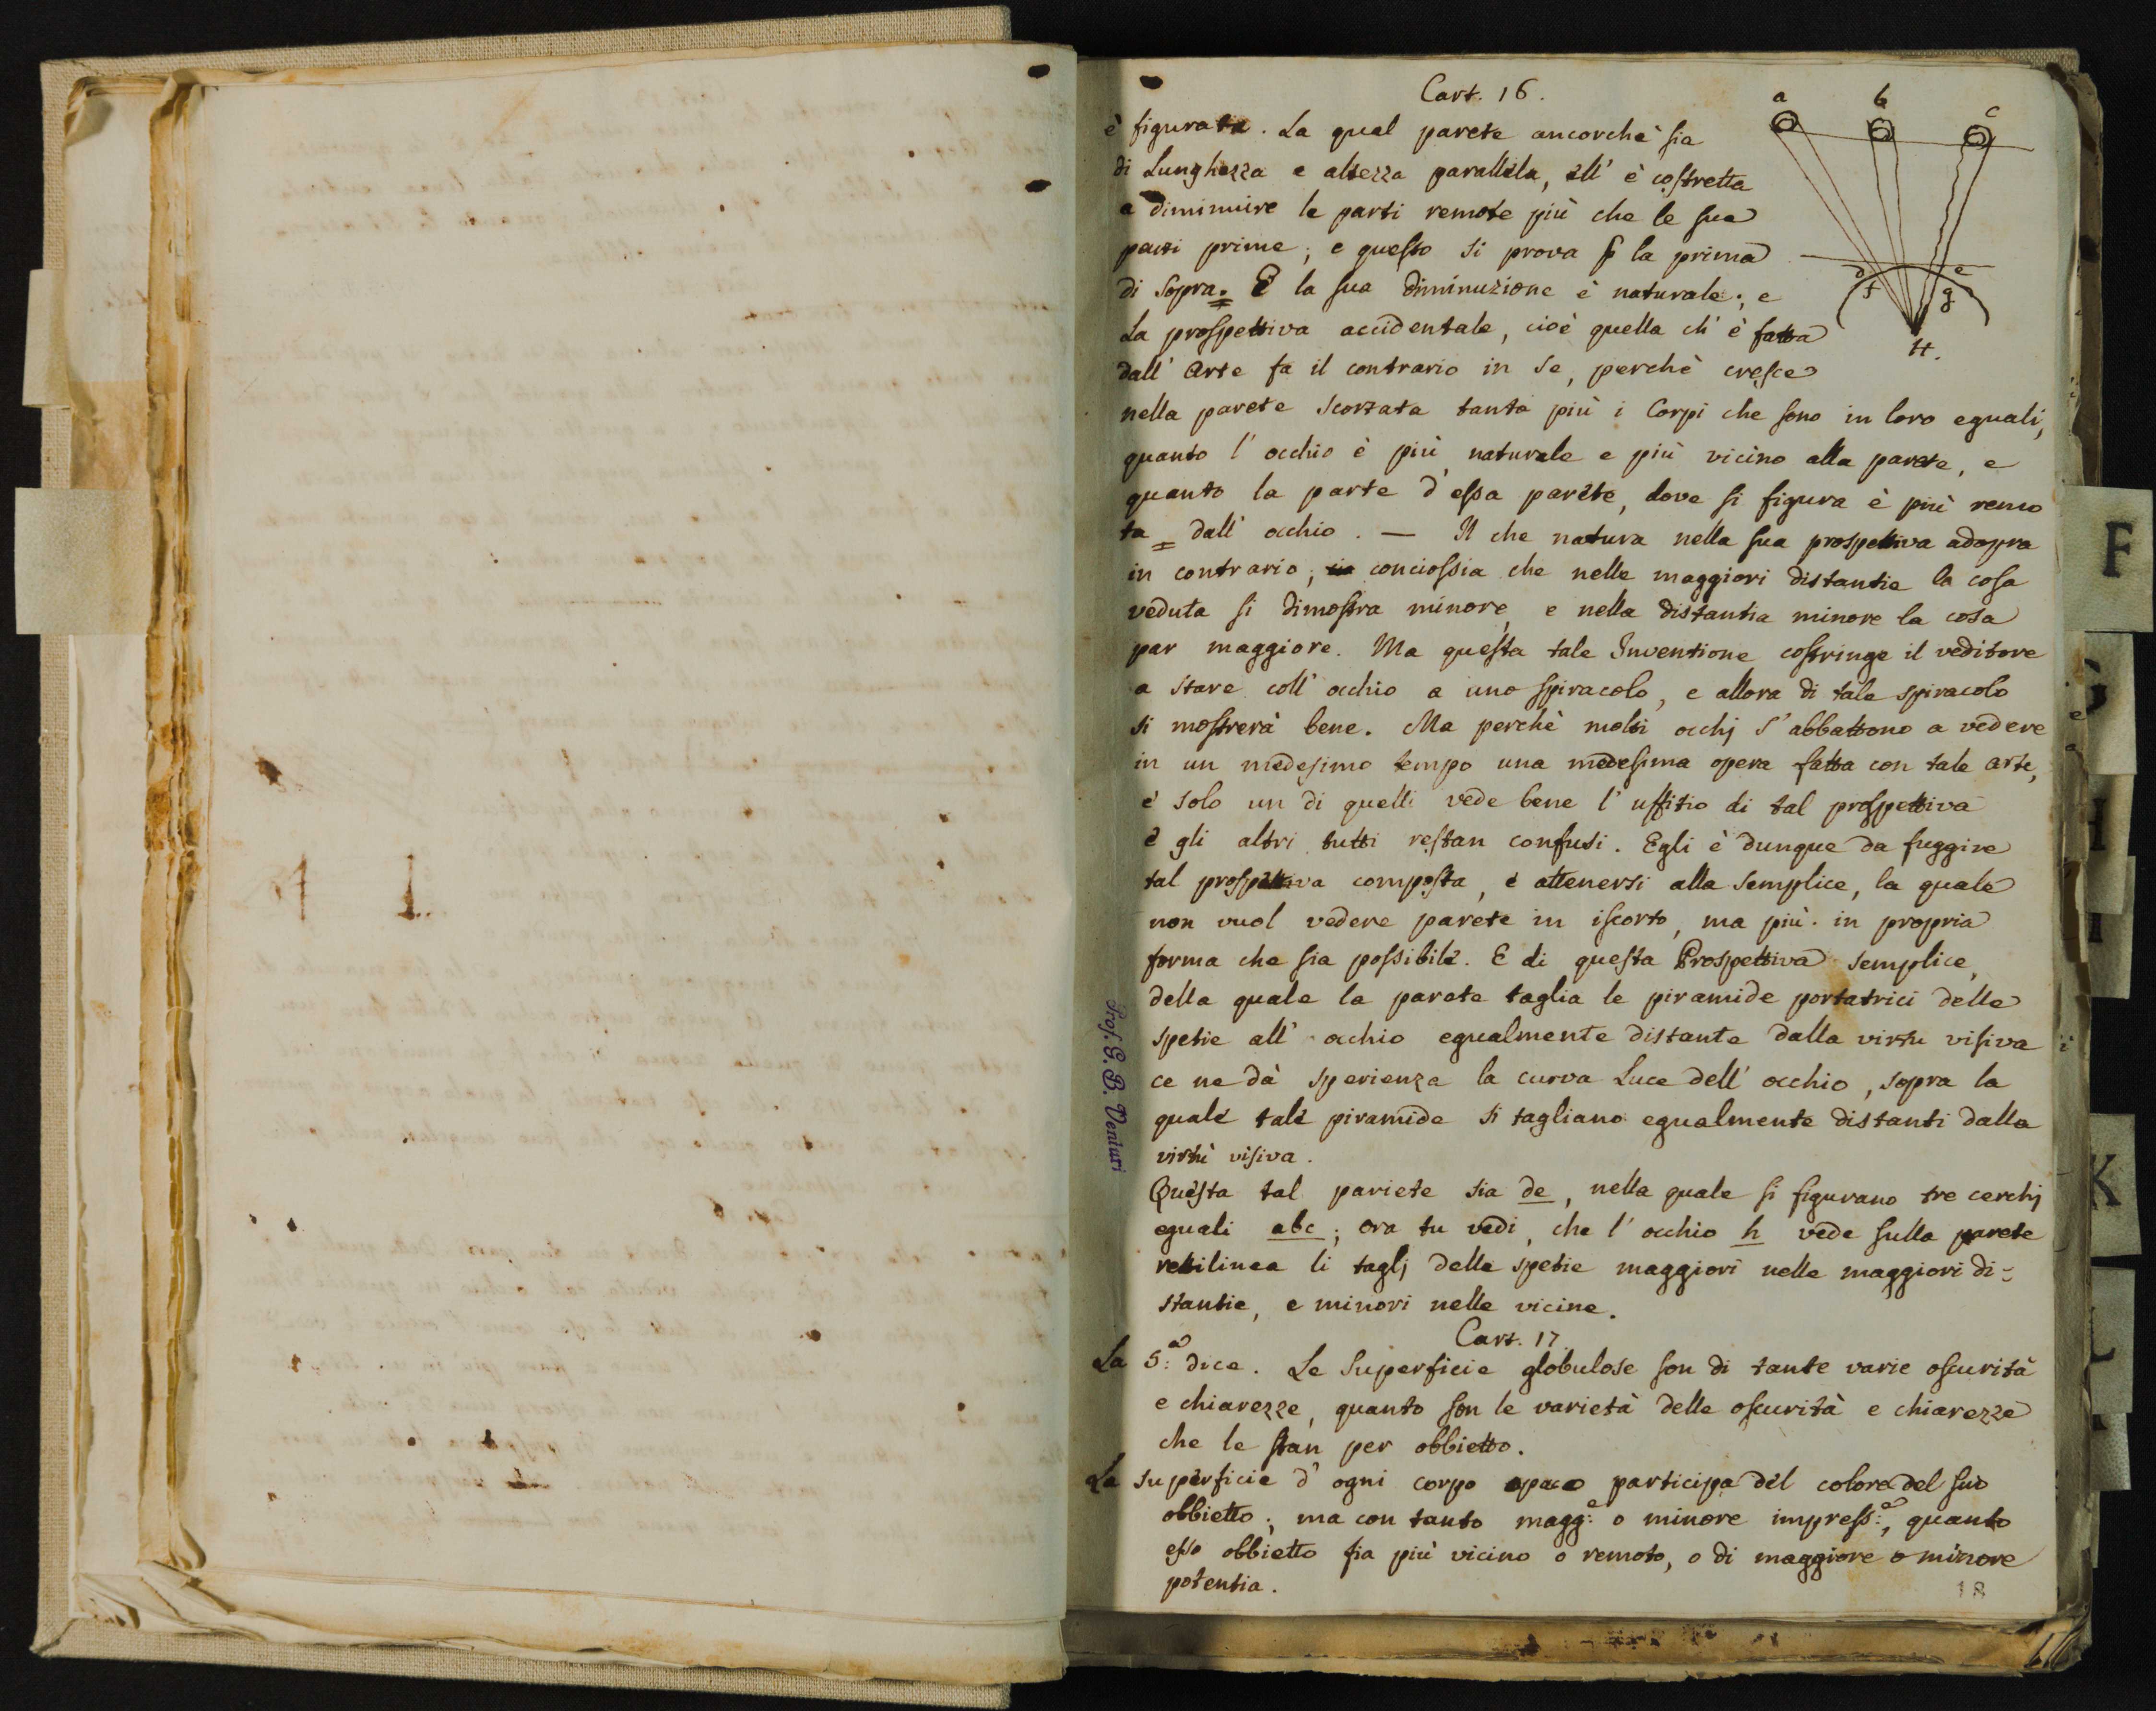 Cart. 16.
a b c
è figurata. La qual parete ancorchè sia
di Lunghezza e altezza parallela, ell' è costretta
a diminuire le parti remote più che le sua
parti prime; e questo si prova p la prima
di sopra. E la sua diminuzione è naturale; e
d e
f g
La prospettiva accidentale, cioè quella ch' è fatta
H.
dall' Arte fa il contrario in se, perchè cresce
nella parete scortata tanto più i Corpi che sono in loro eguali,
quanto l' occhio è più naturale e più vicino alla parete, e
quanto la parte d' essa parete, dove si figura è più remo
ta = dall' occhio. — Il che natura nella sua prospettiva adopra
in contrario; conciossia che nelle maggiori distantie la cosa
veduta si dimostra minore, e nella distantia minore la cosa
par maggiore. Ma questa tale Inventione costringe il veditore
a stare coll' occhio a uno spiracolo, e allora di tale spiracolo
si mostrerà bene. Ma perchè molti occhj s' abbattono a vedere
in un medesimo tempo una medesima opera fatta con tale arte,
e solo un di quelli vede bene l' uffitio di tal prospettiva
e gli altri tutti restan confusi. Egli è dunque da fuggire
tal prospettiva composta, e attenersi alla semplice, la quale
non vuol vedere parete in iscorto, ma più in propria
forma che sia possibile. E di questa Prospettiva semplice,
della quale la parete taglia le piramide portatrici delle
spetie all' occhio egualmente distante dalla virtu visiva
ce ne dà sperienza la curva Luce dell' occhio, sopra la
quale tale piramide si tagliano egualmente distanti dalla
virtù visiva.
Questa tal pariete sia de, nella quale si figurano tre cerchj
eguali abc; ora tu vedi, che l' occhio h vede sulla parete
rettilinea li taglj delle spetie maggiori nelle maggiori di=
stantie, e minori nelle vicine.
Cart. 17.
La 5:a dice. Le Superficie globulose son di tante varie oscurità
e chiarezze, quanto son le varietà delle oscurità e chiarezze
che le stan per obbietto.
La superficie d' ogni corpo opaco participa del colore del suo
obbietto; ma con tanto magg:e o minore impress:e, quanto
esso obbietto fia più vicino o remoto, o di maggiore o minore
potentia.
18
Prof. G. B. Venturi
F
H
K
L